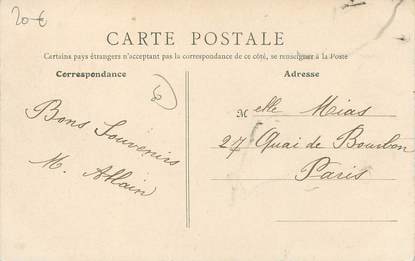 20 €
CARTE POSTALE
Certains pays étrangers n'acceptant pas la correspondance de ce côté, se renseigner à la Poste
Correspondance
Adresse
Bons Souvenirs
Melle Mias
27 Quai de Bourbon
Paris